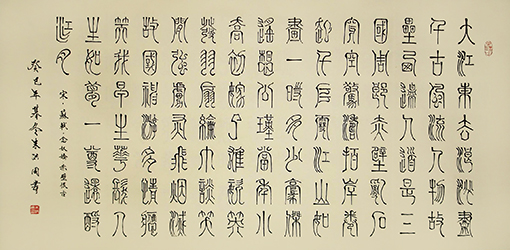 大江東去浪淘盡
千古風流人物故
壘西邊人道是三
國周郎赤壁亂石
穿空驚濤拍岸捲
起千堆雪江山如
畫一時多少豪傑
遙想公瑾當年小
喬初嫁了雄姿英
發羽扇綸巾談笑
間強虜灰飛煙滅
故國神遊多情應
笑我早生華髮人
生如夢一尊還酹
江月
宋·蘇軾·念奴嬌 赤壁懷古
癸巳年暮冬朱洪國書